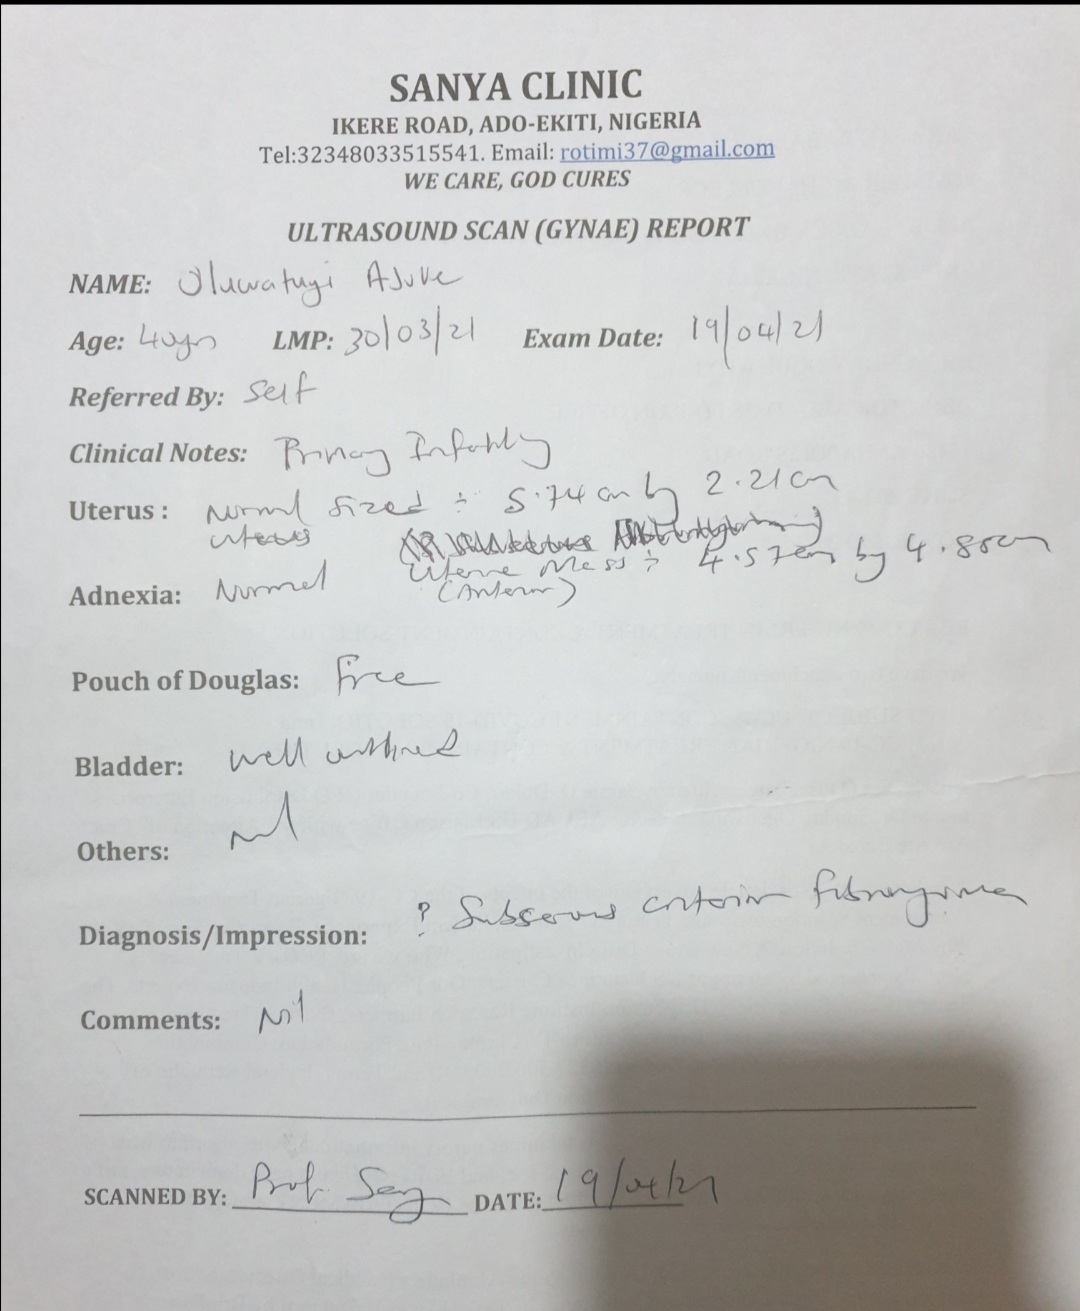 SANYA CLINIC
IKERE ROAD, ADO-EKITI, NIGERIA
Tel:32348033515541. Email: rotimi37@gmail.com
WE CARE, GOD CURES
ULTRASOUND SCAN (GYNAE) REPORT
NAME:
Age: 40yrs LMP: 30/03/21 Exam Date: 19/04/21
Referred By: Self
Clinical Notes: Primary Infertility
Uterus : Normal sized : 5.74 cm by 2.21 cm
uterus
Uterine Mass : 4.57cm by 4.88cm
Adnexia: Normal (Anterior)
Pouch of Douglas: Free
Bladder: well outlined
Others: nil
Diagnosis/Impression: ? Subserous anterior fibromyoma
Comments: Nil
SCANNED BY: Prof. DATE: 19/04/21